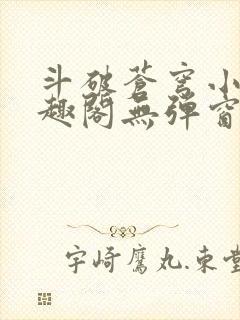 斗破蒼穹小
趣閣無彈窗
宇崎鷹丸.東堂